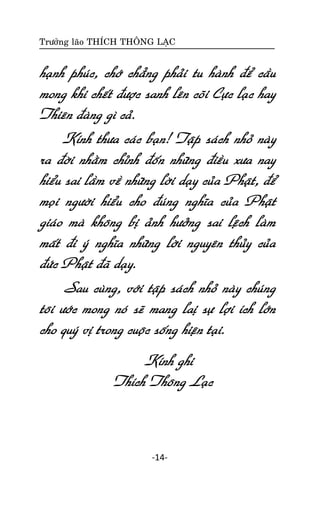 Trưởng lão THÍCH THÔNG LẠC
hạnh phúc, chớ chẳng phải tu hành để cầu
mong khi chết được sanh lên cõi Cực lạc hay
Thiên đàng gì cả.
Kính thưa các bạn! Tập sách nhỏ này
ra đời nhằm chỉnh đốn những điều xưa nay
hiểu sai lầm về những lời dạy của Phật, để
mọi người hiểu cho đúng nghĩa của Phật
giáo mà không bị ảnh hưởng sai lệch làm
mất đi ý nghĩa những lời nguyên thủy của
đức Phật đã dạy.
Sau cùng, với tập sách nhỏ này chúng
tôi ước mong nó sẽ mang lại sự lợi ích lớn
cho quý vị trong cuộc sống hiện tại.
Kính ghi
Thích Thông Lạc
-14-